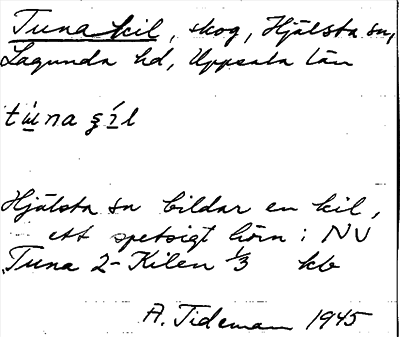 Tuna kil, skog, Hjälsta sn,
Lagunda hd, Uppsala län
tùna ʂíl
Hjälsta sn bildar en kil,
ett spetsigt hörn i NV
Tuna 2- Kilen ⅓ kb
A. Tideman 1945